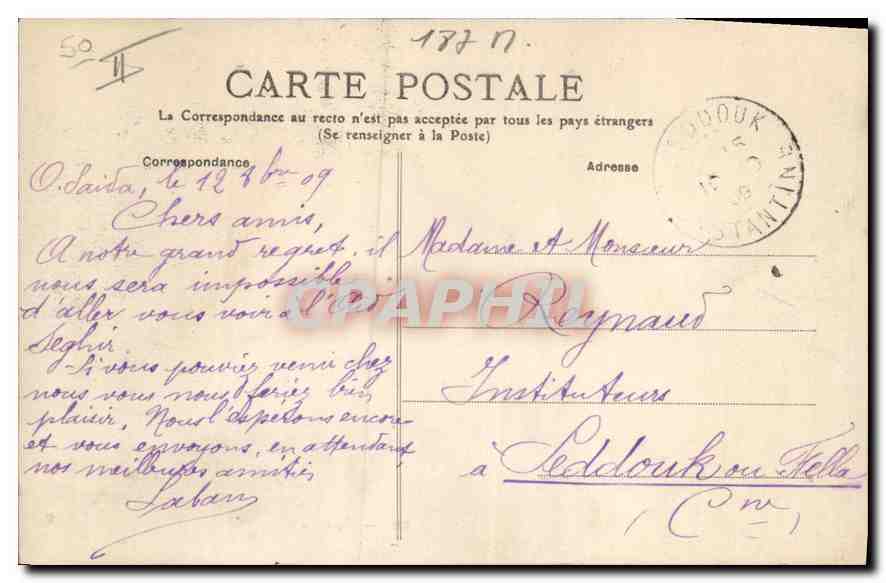 50
II
187 M.
CARTE POSTALE
La Correspondance au recto n'est pas acceptée par tous les pays étrangers
(Se renseigner à la Poste)
Correspondance
Adresse
O. Saïda, le 12 8bre 09
Chers amis,
A notre grand regret, il
nous sera impossible
d'aller vous voir à l'Aïd
Seghir.
Si vous pouviez venir chez
nous vous nous feriez bien
plaisir. Nous l'espérons encore
et vous envoyons, en attendant,
nos meilleures amitiés
Laban
Madame et Monsieur
Reynaud
Instituteurs
à Seddouk ou Fella
(Cne)
EDDOUK
STANTINE
CPAPHIL